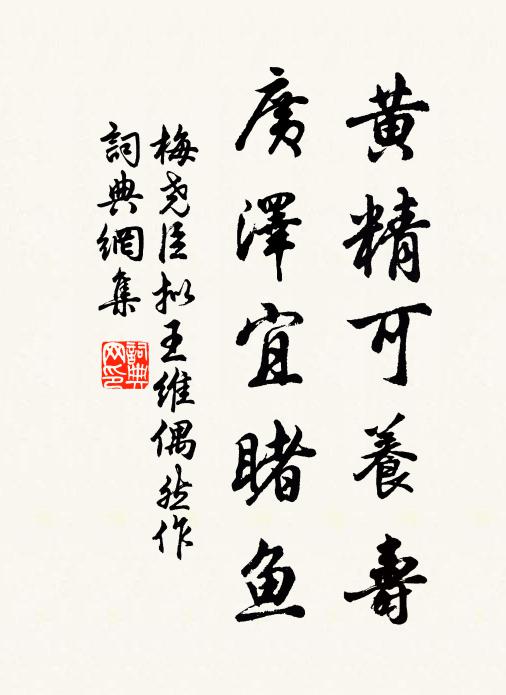 黄精可養壽
廣澤宜睹鱼
梅尧臣拟王維偶然作
詞典網集
詞典
网印